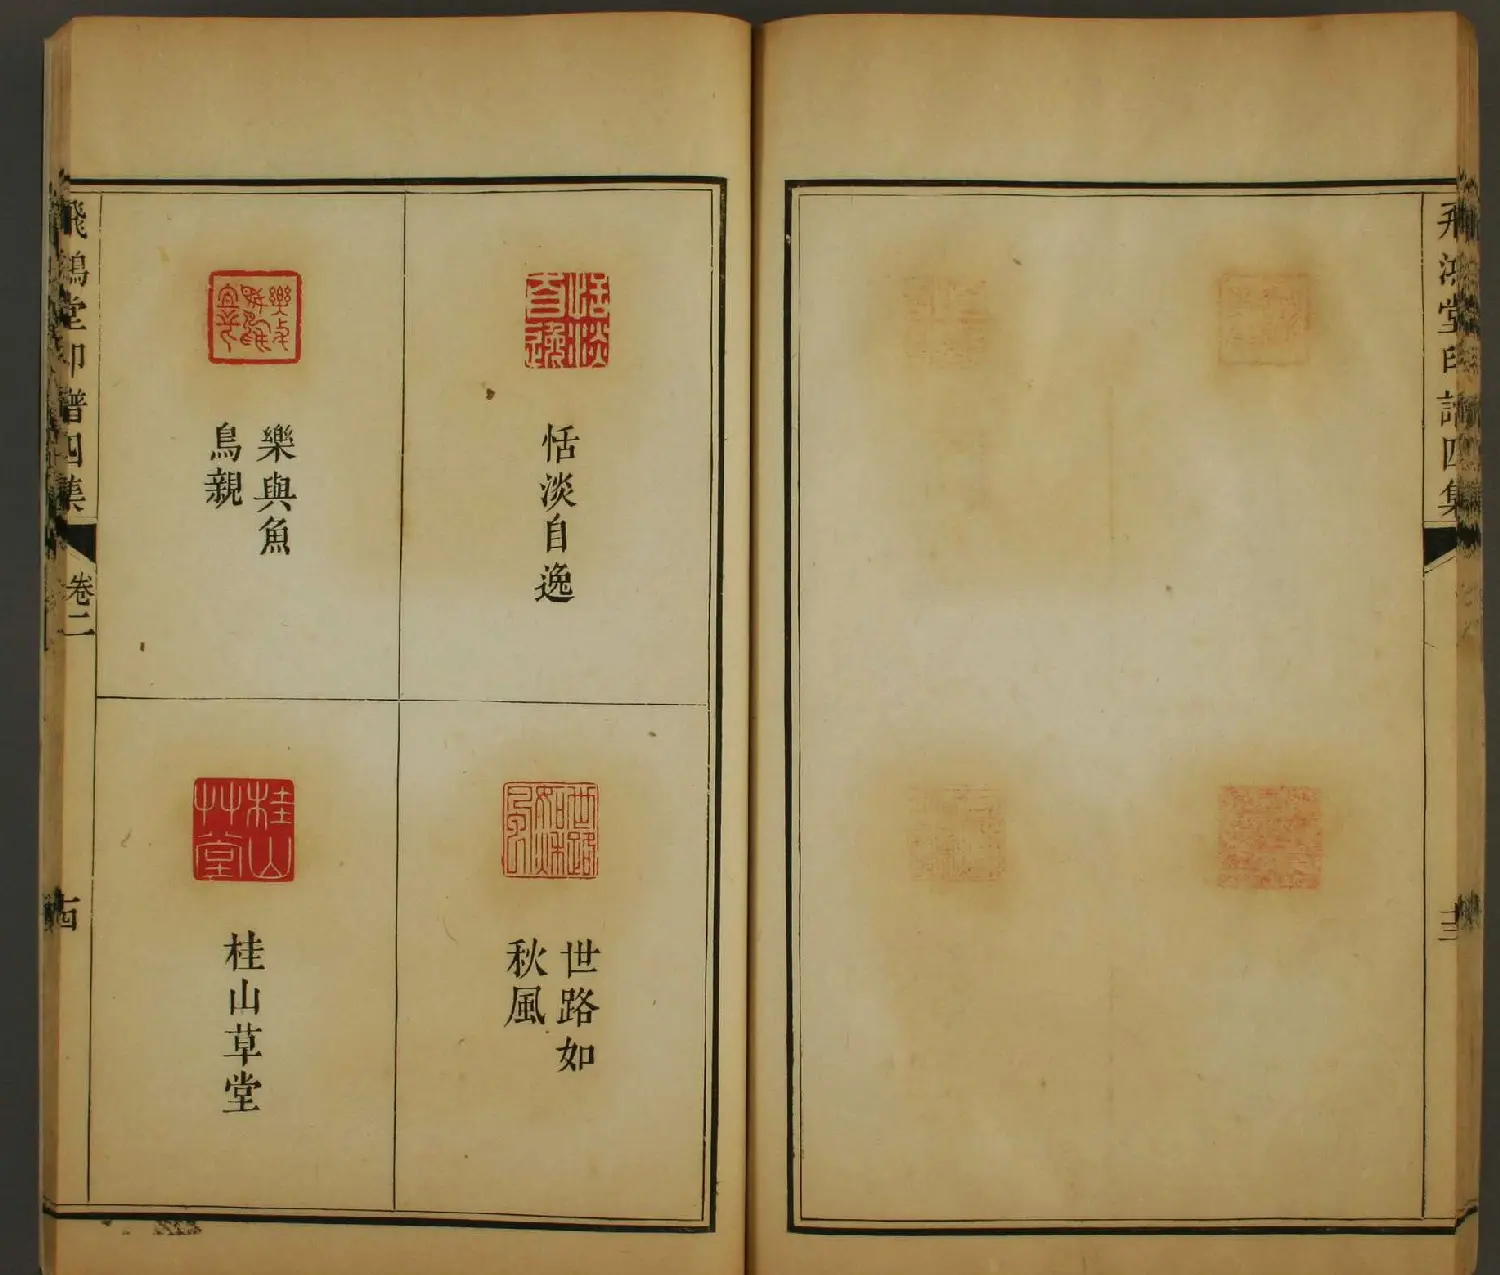 飛鴻堂印譜四集
恬淡自逸
樂與魚
鳥親
世路如
秋風
桂山草堂
飛鴻堂印譜四集
卷二